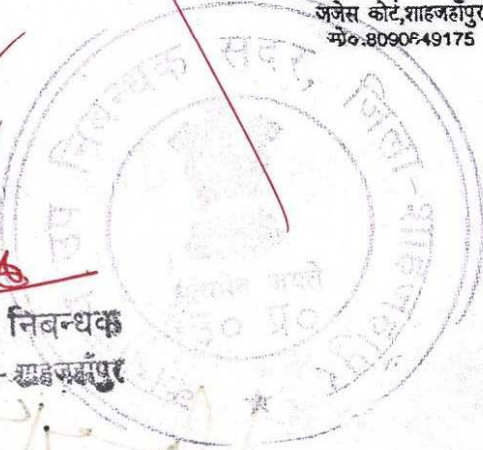 जजेस कोर्ट,शाहजहाँपुर
मो०.8090649175
उप निबन्धक सदर, जिला-शाहजहाँपुर
सत्यमेव जयते
उ० प्र०
निबन्धक
शाहजहाँपुर